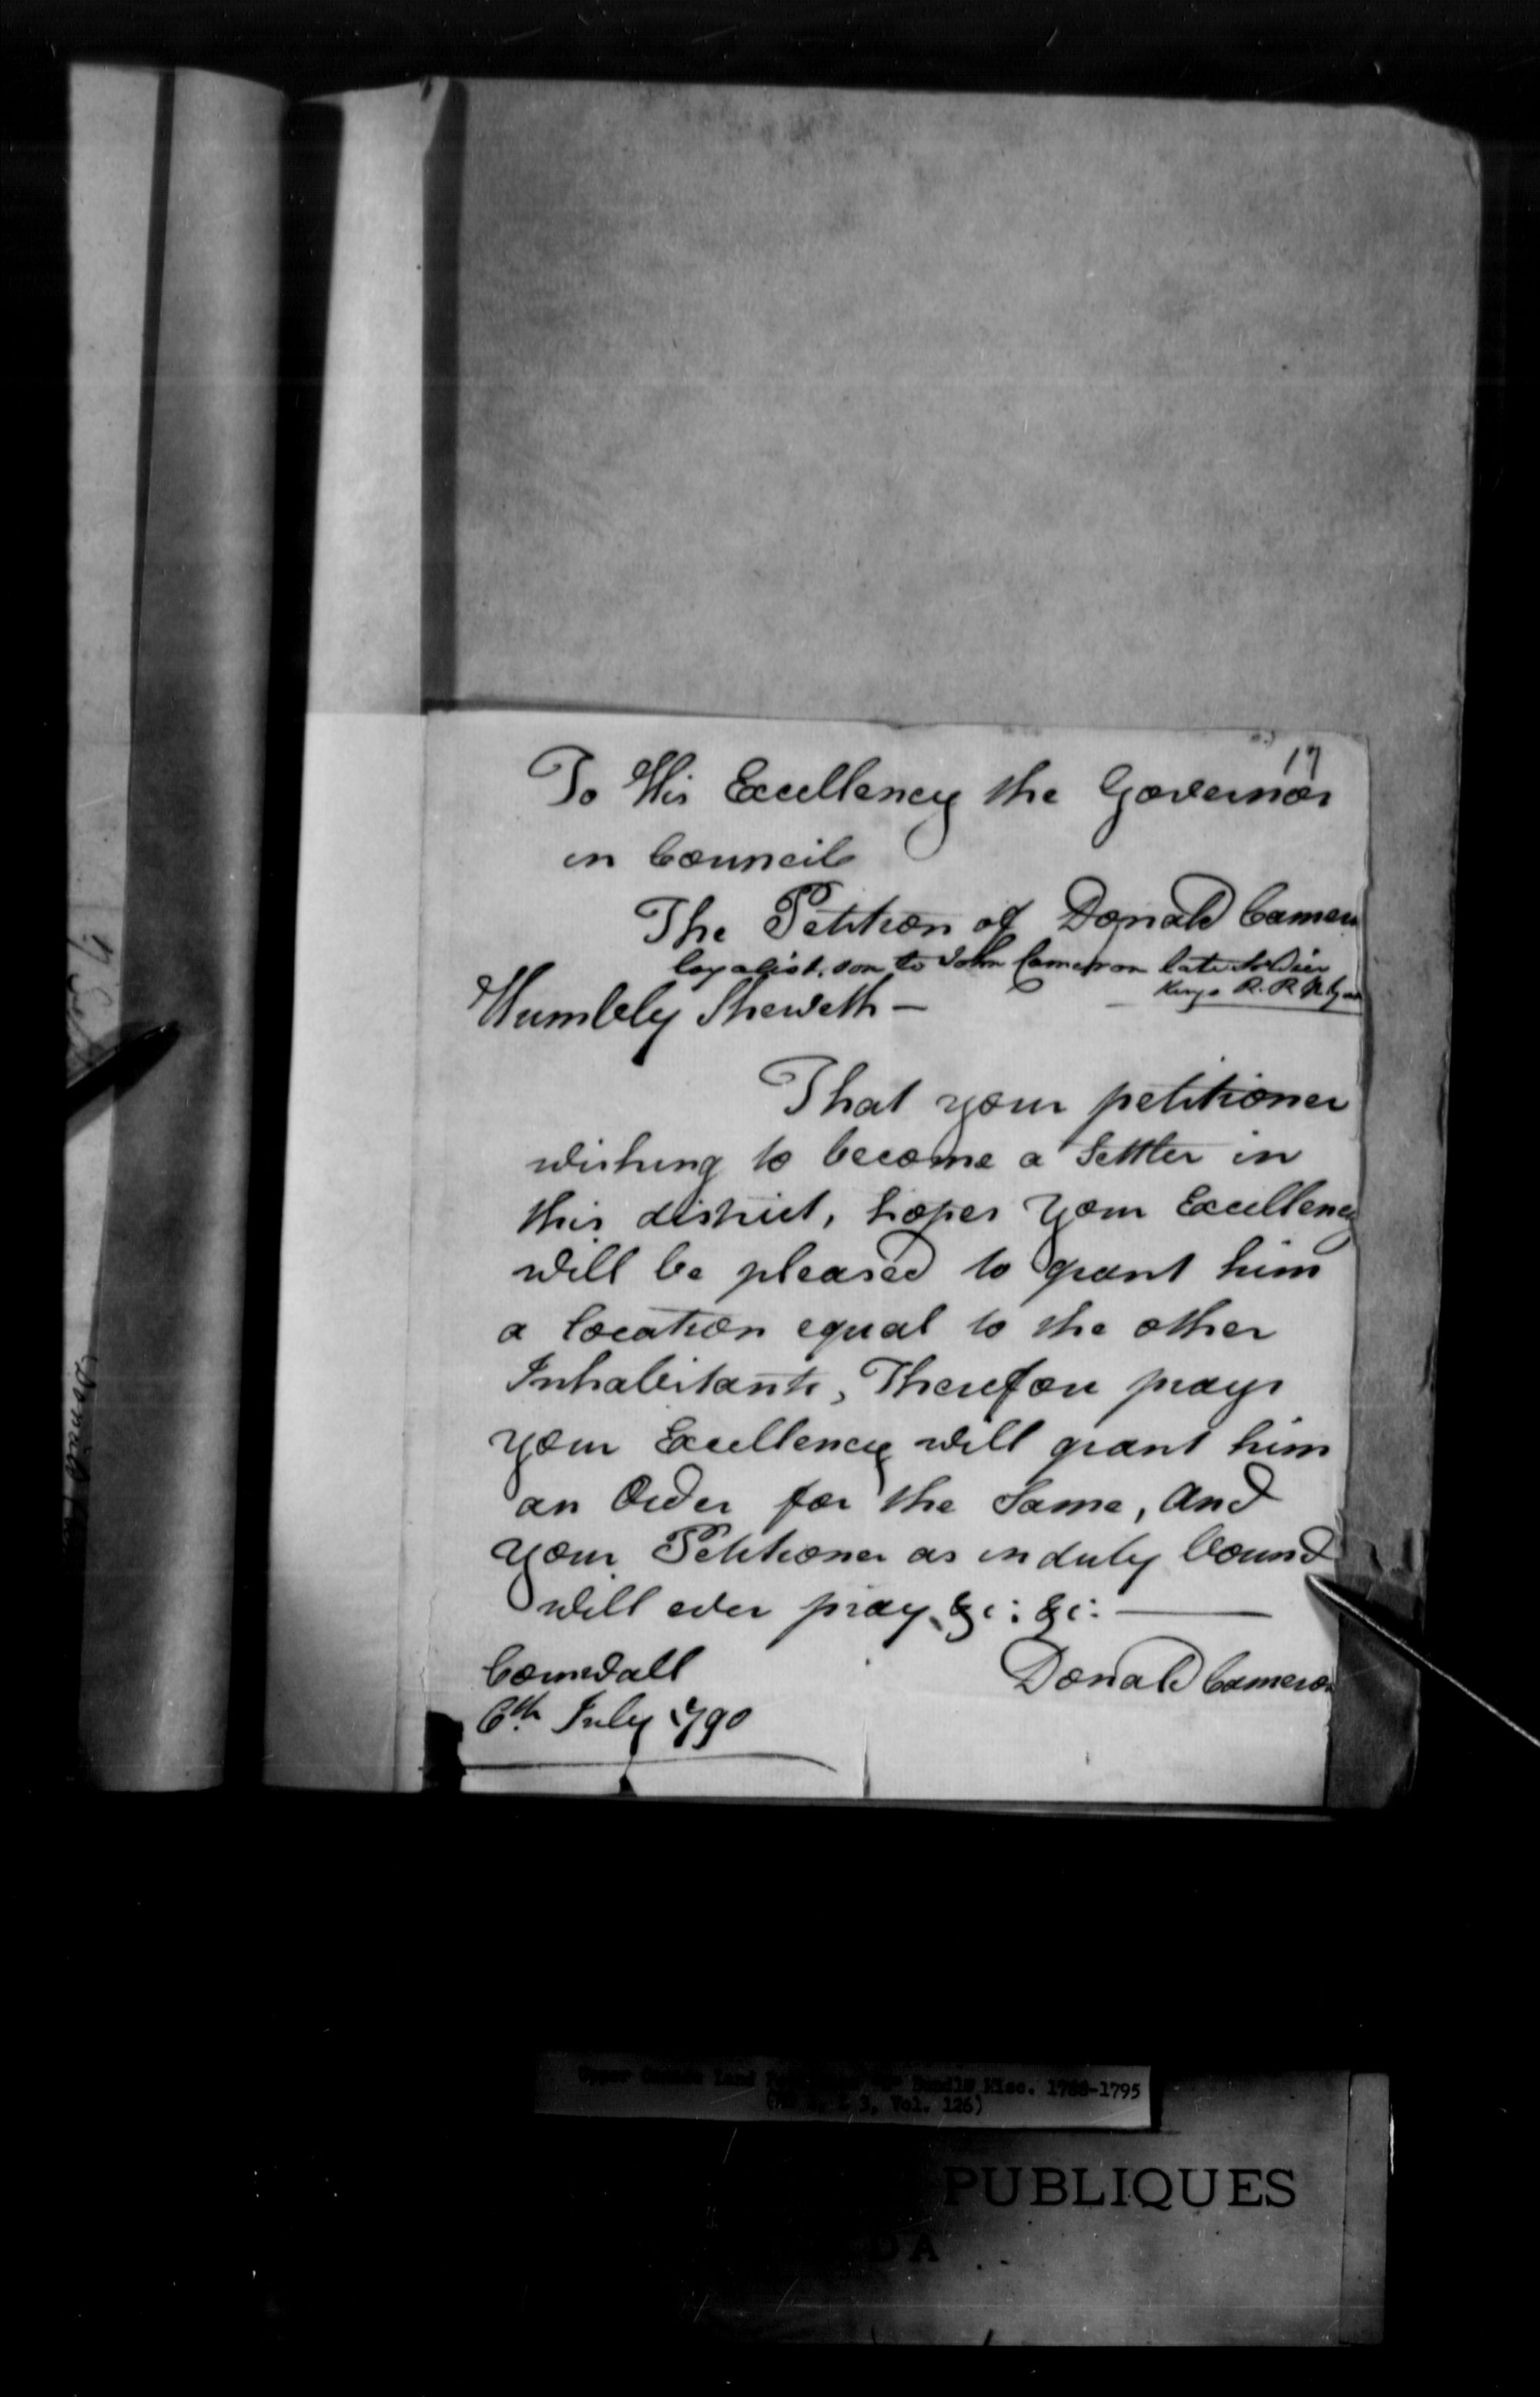 17
To His Excellency the Governor
in Council
The Petition of Donald Camero
loyalist, son to John Cameron late Soldier
Kings R. R. N. York
Humbly Sheweth —
That your petitioner
wishing to become a Settler in
this district, hopes your Excellency
will be pleased to grant him
a location equal to the other
Inhabitants, Therefore prays
your Excellency will grant him
an Order for the Same, and
your Petitioner as in duty bound
will ever pray &c: &c: —
Cornwall
6th July 1790
Donald Cameron
Upper Canada Land Bundle Misc. 1788-1795
3, Vol. 126)
PUBLIQUES
DA